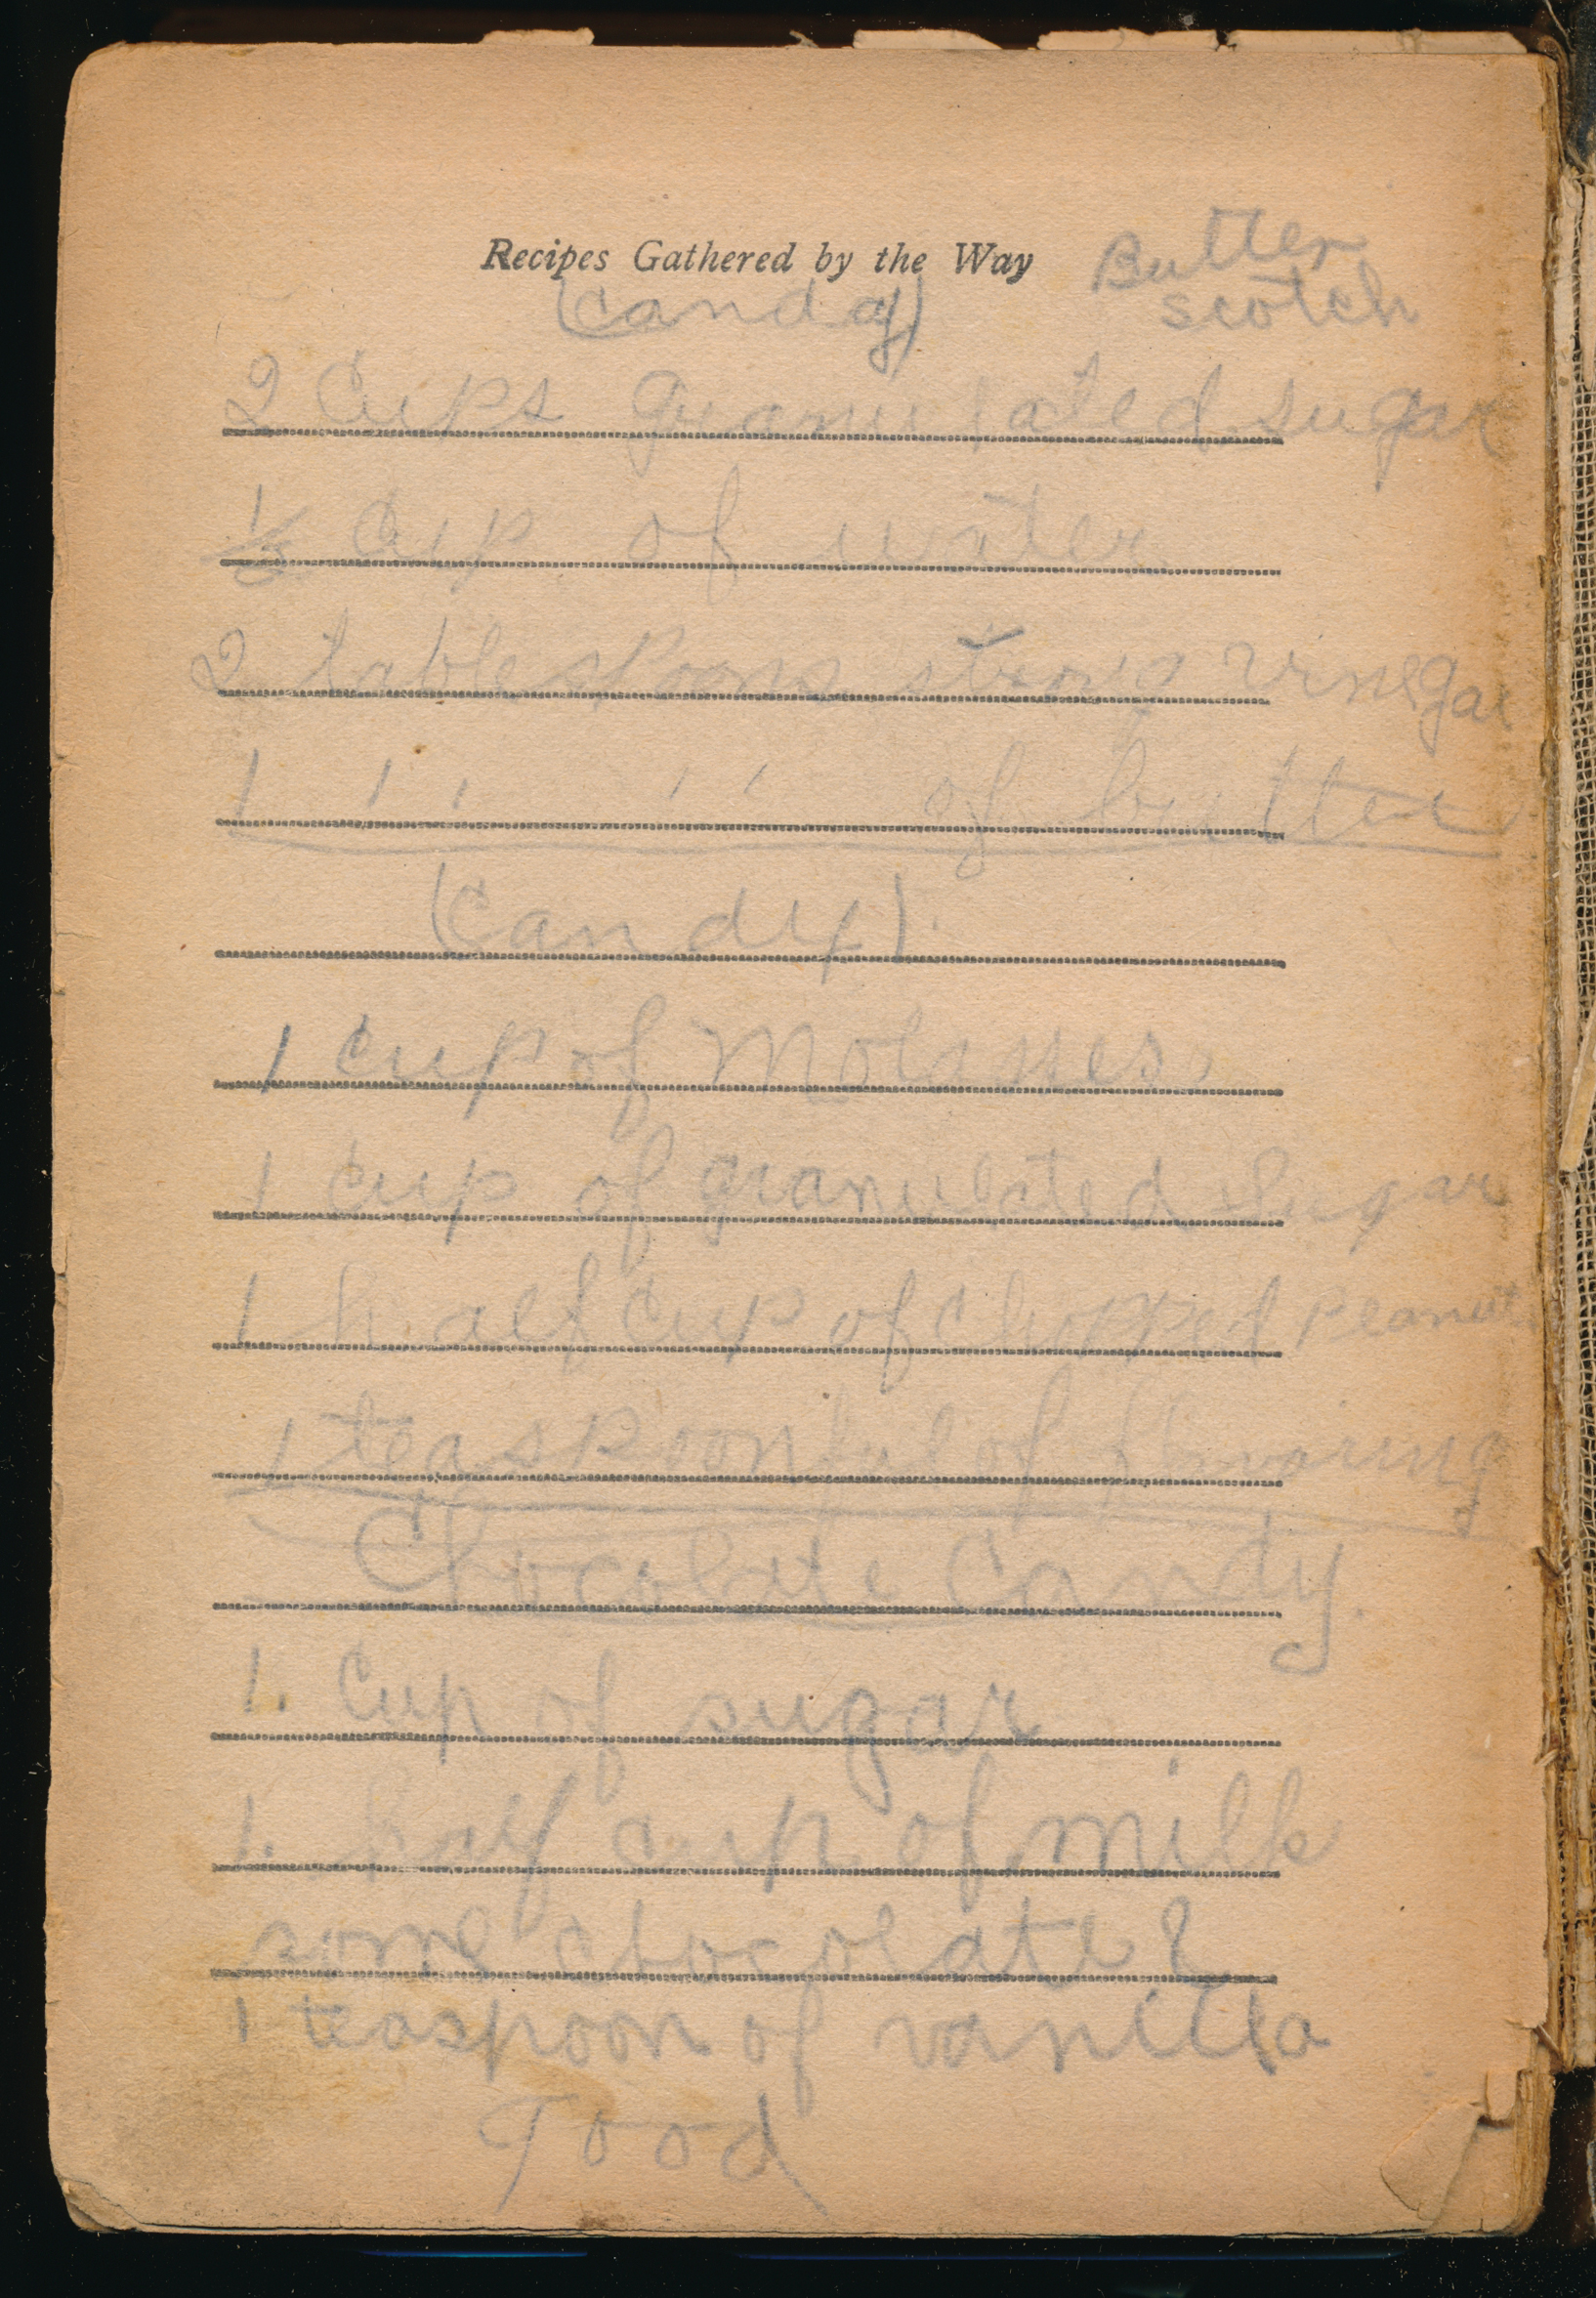 Recipes Gathered by the Way
Butter
scotch
(Candy)
2 Cups Granulated sugar
1/2 Cup of water
2 tablespoons strong Vinegar
1 " " of butter
(Candy)
1 cup of Molasses,
1 cup of granulated Sugar
1 half cup of chopped peanuts
1 teaspoonful of flavoring
Chocolate Candy.
1. Cup of sugar
1. half cup of milk
some chocolate
1 teaspoon of vanilla